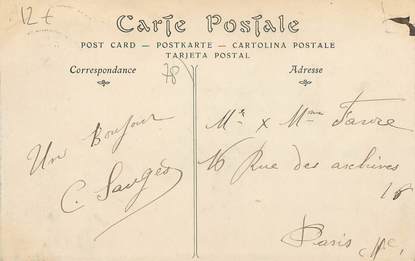 12 €
Carte Postale
POST CARD — POSTKARTE — CARTOLINA POSTALE
TARJETA POSTAL
Correspondance
78
Adresse
Un Bonjour
C. Sauges
Mr x Mme Favre
16 Rue des archives
18
Paris